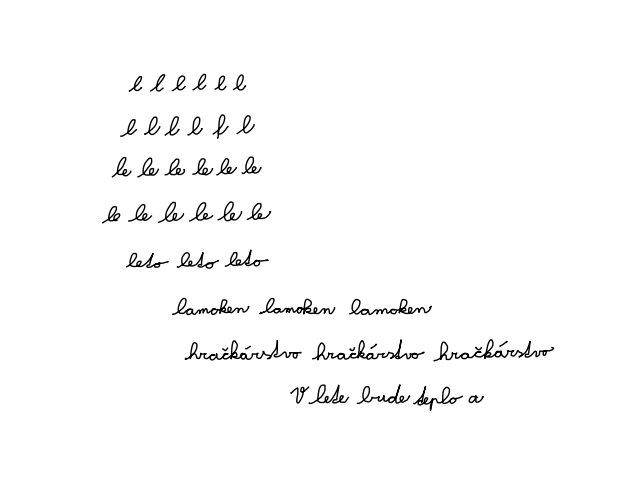 l l l l l l
l l l l f l
le le le le le le
le le le le le le
leto leto leto
lamoken lamoken lamoken
hračkárstvo hračkárstvo hračkárstvo
V lete bude teplo a